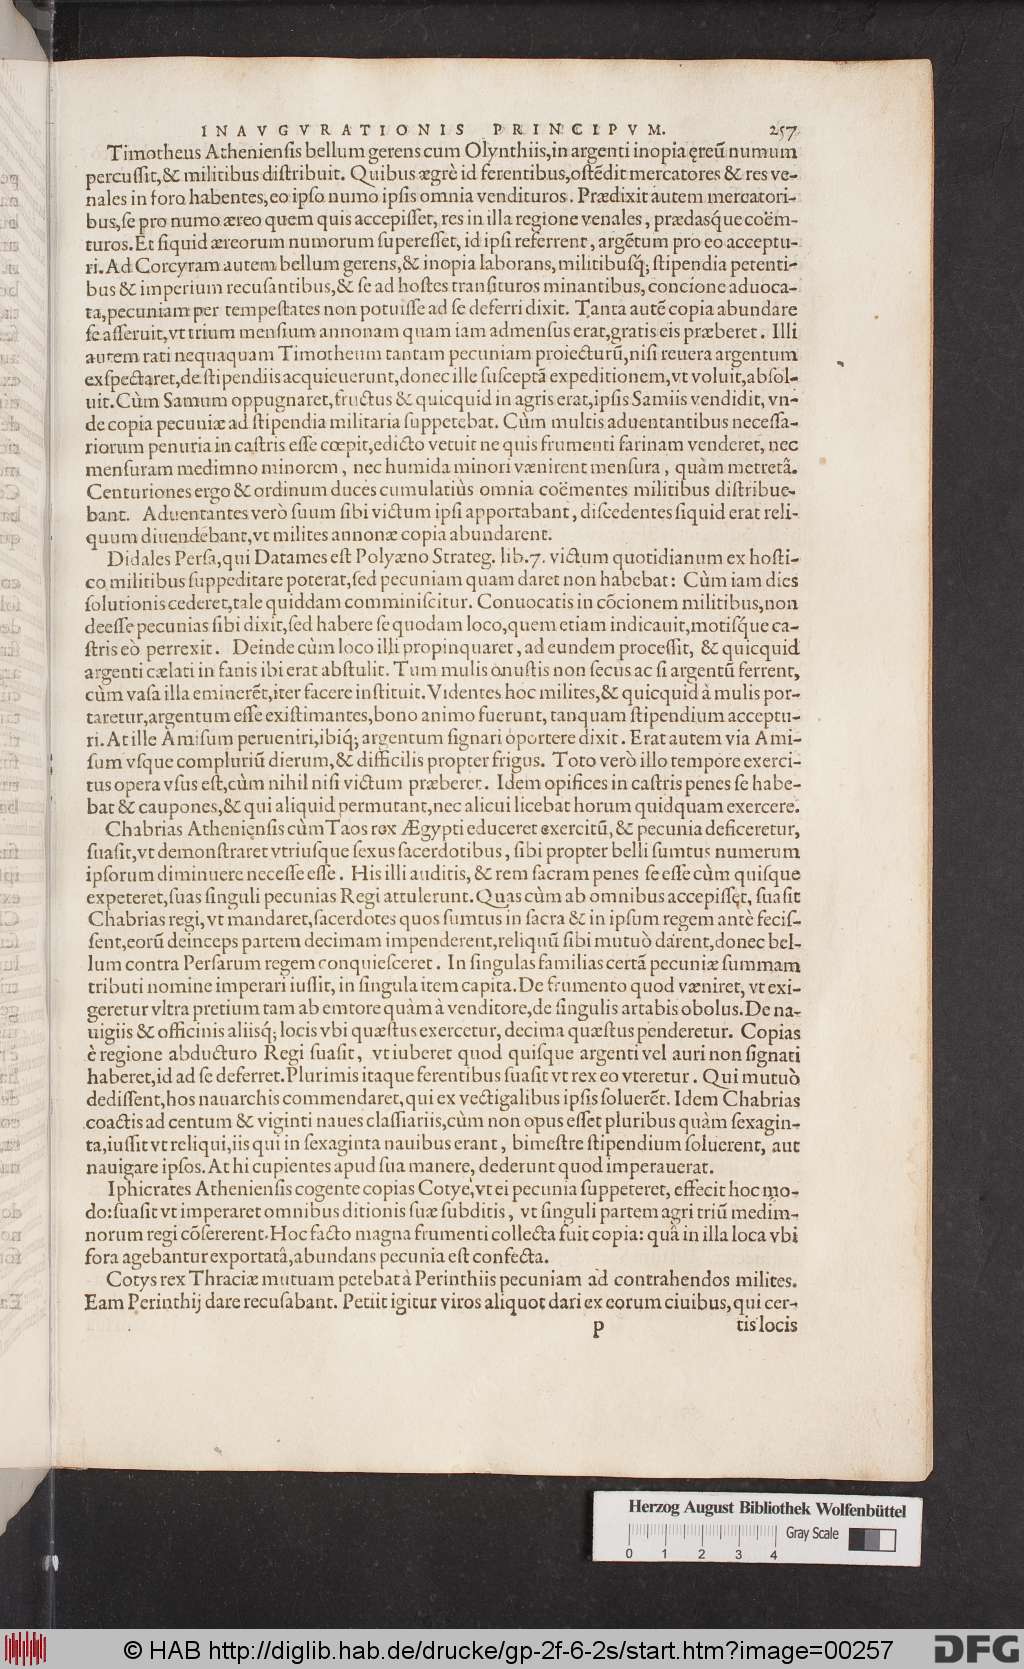 INAVGVRATIONIS PRINCIPVM. 257
Timotheus Atheniensis bellum gerens cum Olynthiis,in argenti inopia ęreũ numum
percussit,& militibus distribuit. Quibus ægrè id ferentibus,ostẽdit mercatores & res ve-
nales in foro habentes,eo ipso numo ipsis omnia vendituros. Prædixit autem mercatori-
bus,se pro numo æreo quem quis accepisset, res in illa regione venales, prædasq́ue coëm-
turos.Et siquid æreorum numorum superesset, id ipsi referrent, argẽtum pro eo acceptu-
ri. Ad Corcyram autem bellum gerens,& inopia laborans, militibusq́; stipendia petenti-
bus & imperium recusantibus,& se ad hostes transituros minantibus, concione aduoca-
ta,pecuniam per tempestates non potuisse ad se deferri dixit. Tanta autẽ copia abundare
se asseruit,vt trium mensium annonam quam iam admensus erat,gratis eis præberet. Illi
autem rati nequaquam Timotheum tantam pecuniam proiecturũ,nisi reuera argentum
exspectaret,de stipendiis acquieuerunt,donec ille susceptã expeditionem,vt voluit,absol-
uit.Cùm Samum oppugnaret,fructus & quicquid in agris erat,ipsis Samiis vendidit, vn-
de copia pecuniæ ad stipendia militaria suppetebat. Cùm multis aduentantibus necessa-
riorum penuria in castris esse cœpit,edicto vetuit ne quis frumenti farinam venderet, nec
mensuram medimno minorem, nec humida minori vænirent mensura, quàm metretâ.
Centuriones ergo & ordinum duces cumulatiùs omnia coëmentes militibus distribue-
bant. Aduentantes verò suum sibi victum ipsi apportabant, discedentes siquid erat reli-
quum diuendebant,vt milites annonæ copia abundarent.
Didales Persa,qui Datames est Polyæno Strateg. lib.7. victum quotidianum ex hosti-
co militibus suppeditare poterat,sed pecuniam quam daret non habebat: Cùm iam dies
solutionis cederet,tale quiddam comminiscitur. Conuocatis in cõcionem militibus,non
deesse pecunias sibi dixit,sed habere se quodam loco,quem etiam indicauit,motisq́ue ca-
stris eò perrexit. Deinde cùm loco illi propinquaret, ad eundem processit, & quicquid
argenti cælati in fanis ibi erat abstulit. Tum mulis onustis non secus ac si argentũ ferrent,
cùm vasa illa eminerẽt,iter facere instituit. Videntes hoc milites,& quicquid à mulis por-
taretur,argentum esse existimantes,bono animo fuerunt, tanquam stipendium acceptu-
ri. At ille Amisum perueniri,ibiq́; argentum signari oportere dixit. Erat autem via Ami-
sum vsque compluriũ dierum,& difficilis propter frigus. Toto verò illo tempore exerci-
tus opera vsus est,cùm nihil nisi victum præberet. Idem opifices in castris penes se habe-
bat & caupones,& qui aliquid permutant,nec alicui licebat horum quidquam exercere.
Chabrias Atheniẹnsis cùm Taos rex Ægypti educeret exercitũ, & pecunia deficeretur,
suasit,vt demonstraret vtriusque sexus sacerdotibus, sibi propter belli sumtus numerum
ipsorum diminuere necesse esse. His illi auditis, & rem sacram penes se esse cùm quisque
expeteret,suas singuli pecunias Regi attulerunt.Quas cùm ab omnibus accepisset, suasit
Chabrias regi, vt mandaret,sacerdotes quos sumtus in sacra & in ipsum regem antè fecis-
sent,eorũ deinceps partem decimam impenderent,reliquũ sibi mutuò darent,donec bel-
lum contra Persarum regem conquiesceret. In singulas familias certã pecuniæ summam
tributi nomine imperari iussit, in singula item capita. De frumento quod væniret, vt exi-
geretur vltra pretium tam ab emtore quàm à venditore,de singulis artabis obolus.De na-
uigiis & officinis aliisq́; locis vbi quæstus exercetur, decima quæstus penderetur. Copias
è regione abducturo Regi suasit, vt iuberet quod quisque argenti vel auri non signati
haberet,id ad se deferret.Plurimis itaque ferentibus suasit vt rex eo vteretur. Qui mutuò
dedissent,hos nauarchis commendaret,qui ex vectigalibus ipsis soluerẽt. Idem Chabrias
coactis ad centum & viginti naues classiariis,cùm non opus esset pluribus quàm sexagin-
ta,iussit vt reliqui,iis qui in sexaginta nauibus erant, bimestre stipendium soluerent, aut
nauigare ipsos. At hi cupientes apud sua manere, dederunt quod imperauerat.
Iphicrates Atheniensis cogente copias Cotye,vt ei pecunia suppeteret, effecit hoc mo-
do: suasit vt imperaret omnibus ditionis suæ subditis, vt singuli partem agri triũ medim-
norum regi cõsererent.Hoc facto magna frumenti collecta fuit copia: quâ in illa loca vbi
fora agebantur exportatâ,abundans pecunia est confecta.
Cotys rex Thraciæ mutuam petebat à Perinthiis pecuniam ad contrahendos milites.
Eam Perinthij dare recusabant. Petiit igitur viros aliquot dari ex eorum ciuibus, qui cer-
p tis locis
Herzog August Bibliothek Wolfenbüttel
Gray Scale
0 1 2 3 4
© HAB http://diglib.hab.de/drucke/gp-2f-6-2s/start.htm?image=00257
DFG